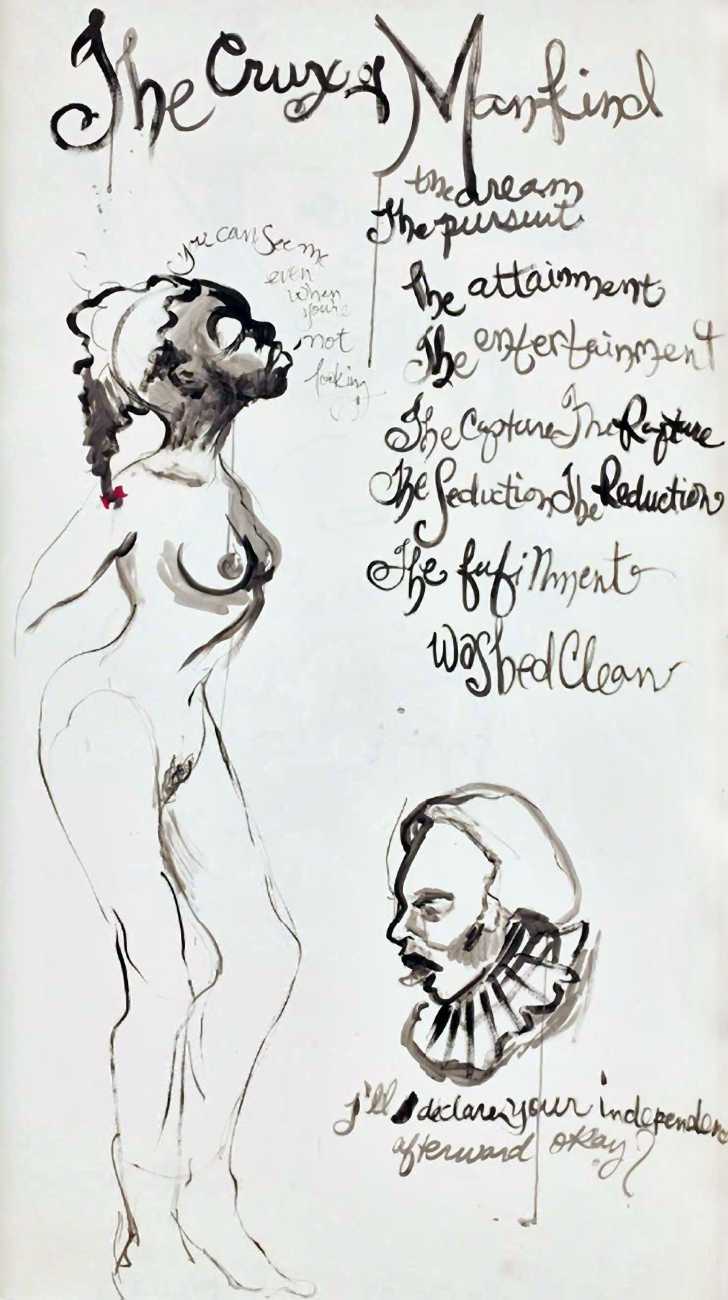 The Crux of Mankind
the dream
The pursuit
The attainment
The entertainment
The Capture The Rapture
The Seduction The Reduction
The fufillment
Washed Clean
you can see me
even
when
you're
not
looking
I'll declare your independen
afterward okay?